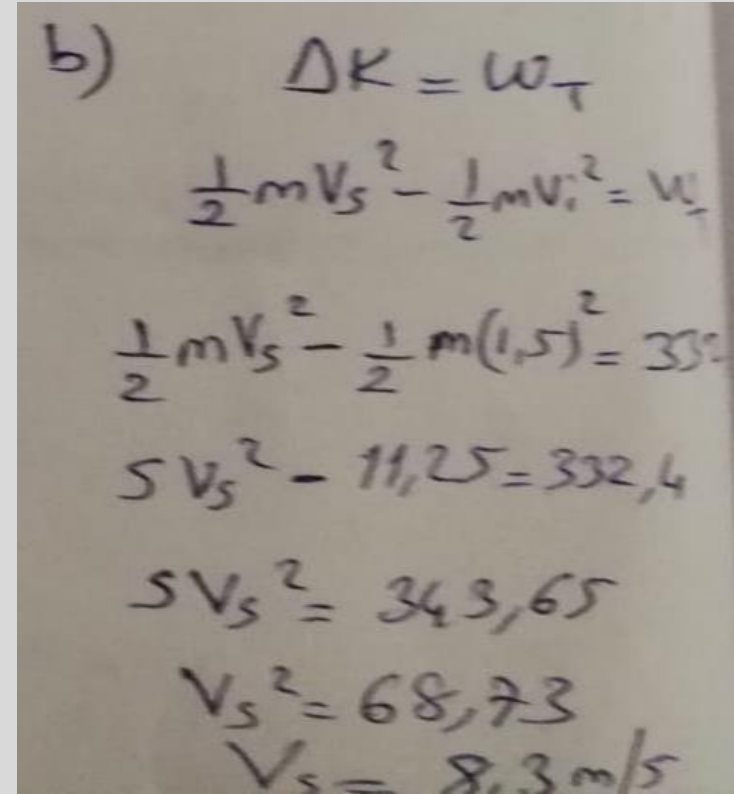 b) ΔK = W_T
½ m V_s² - ½ m V_i² = W_T
½ m V_s² - ½ m (1,5)² = 332
5 V_s² - 11,25 = 332,4
5 V_s² = 343,65
V_s² = 68,73
V_s = 8,3 m/s